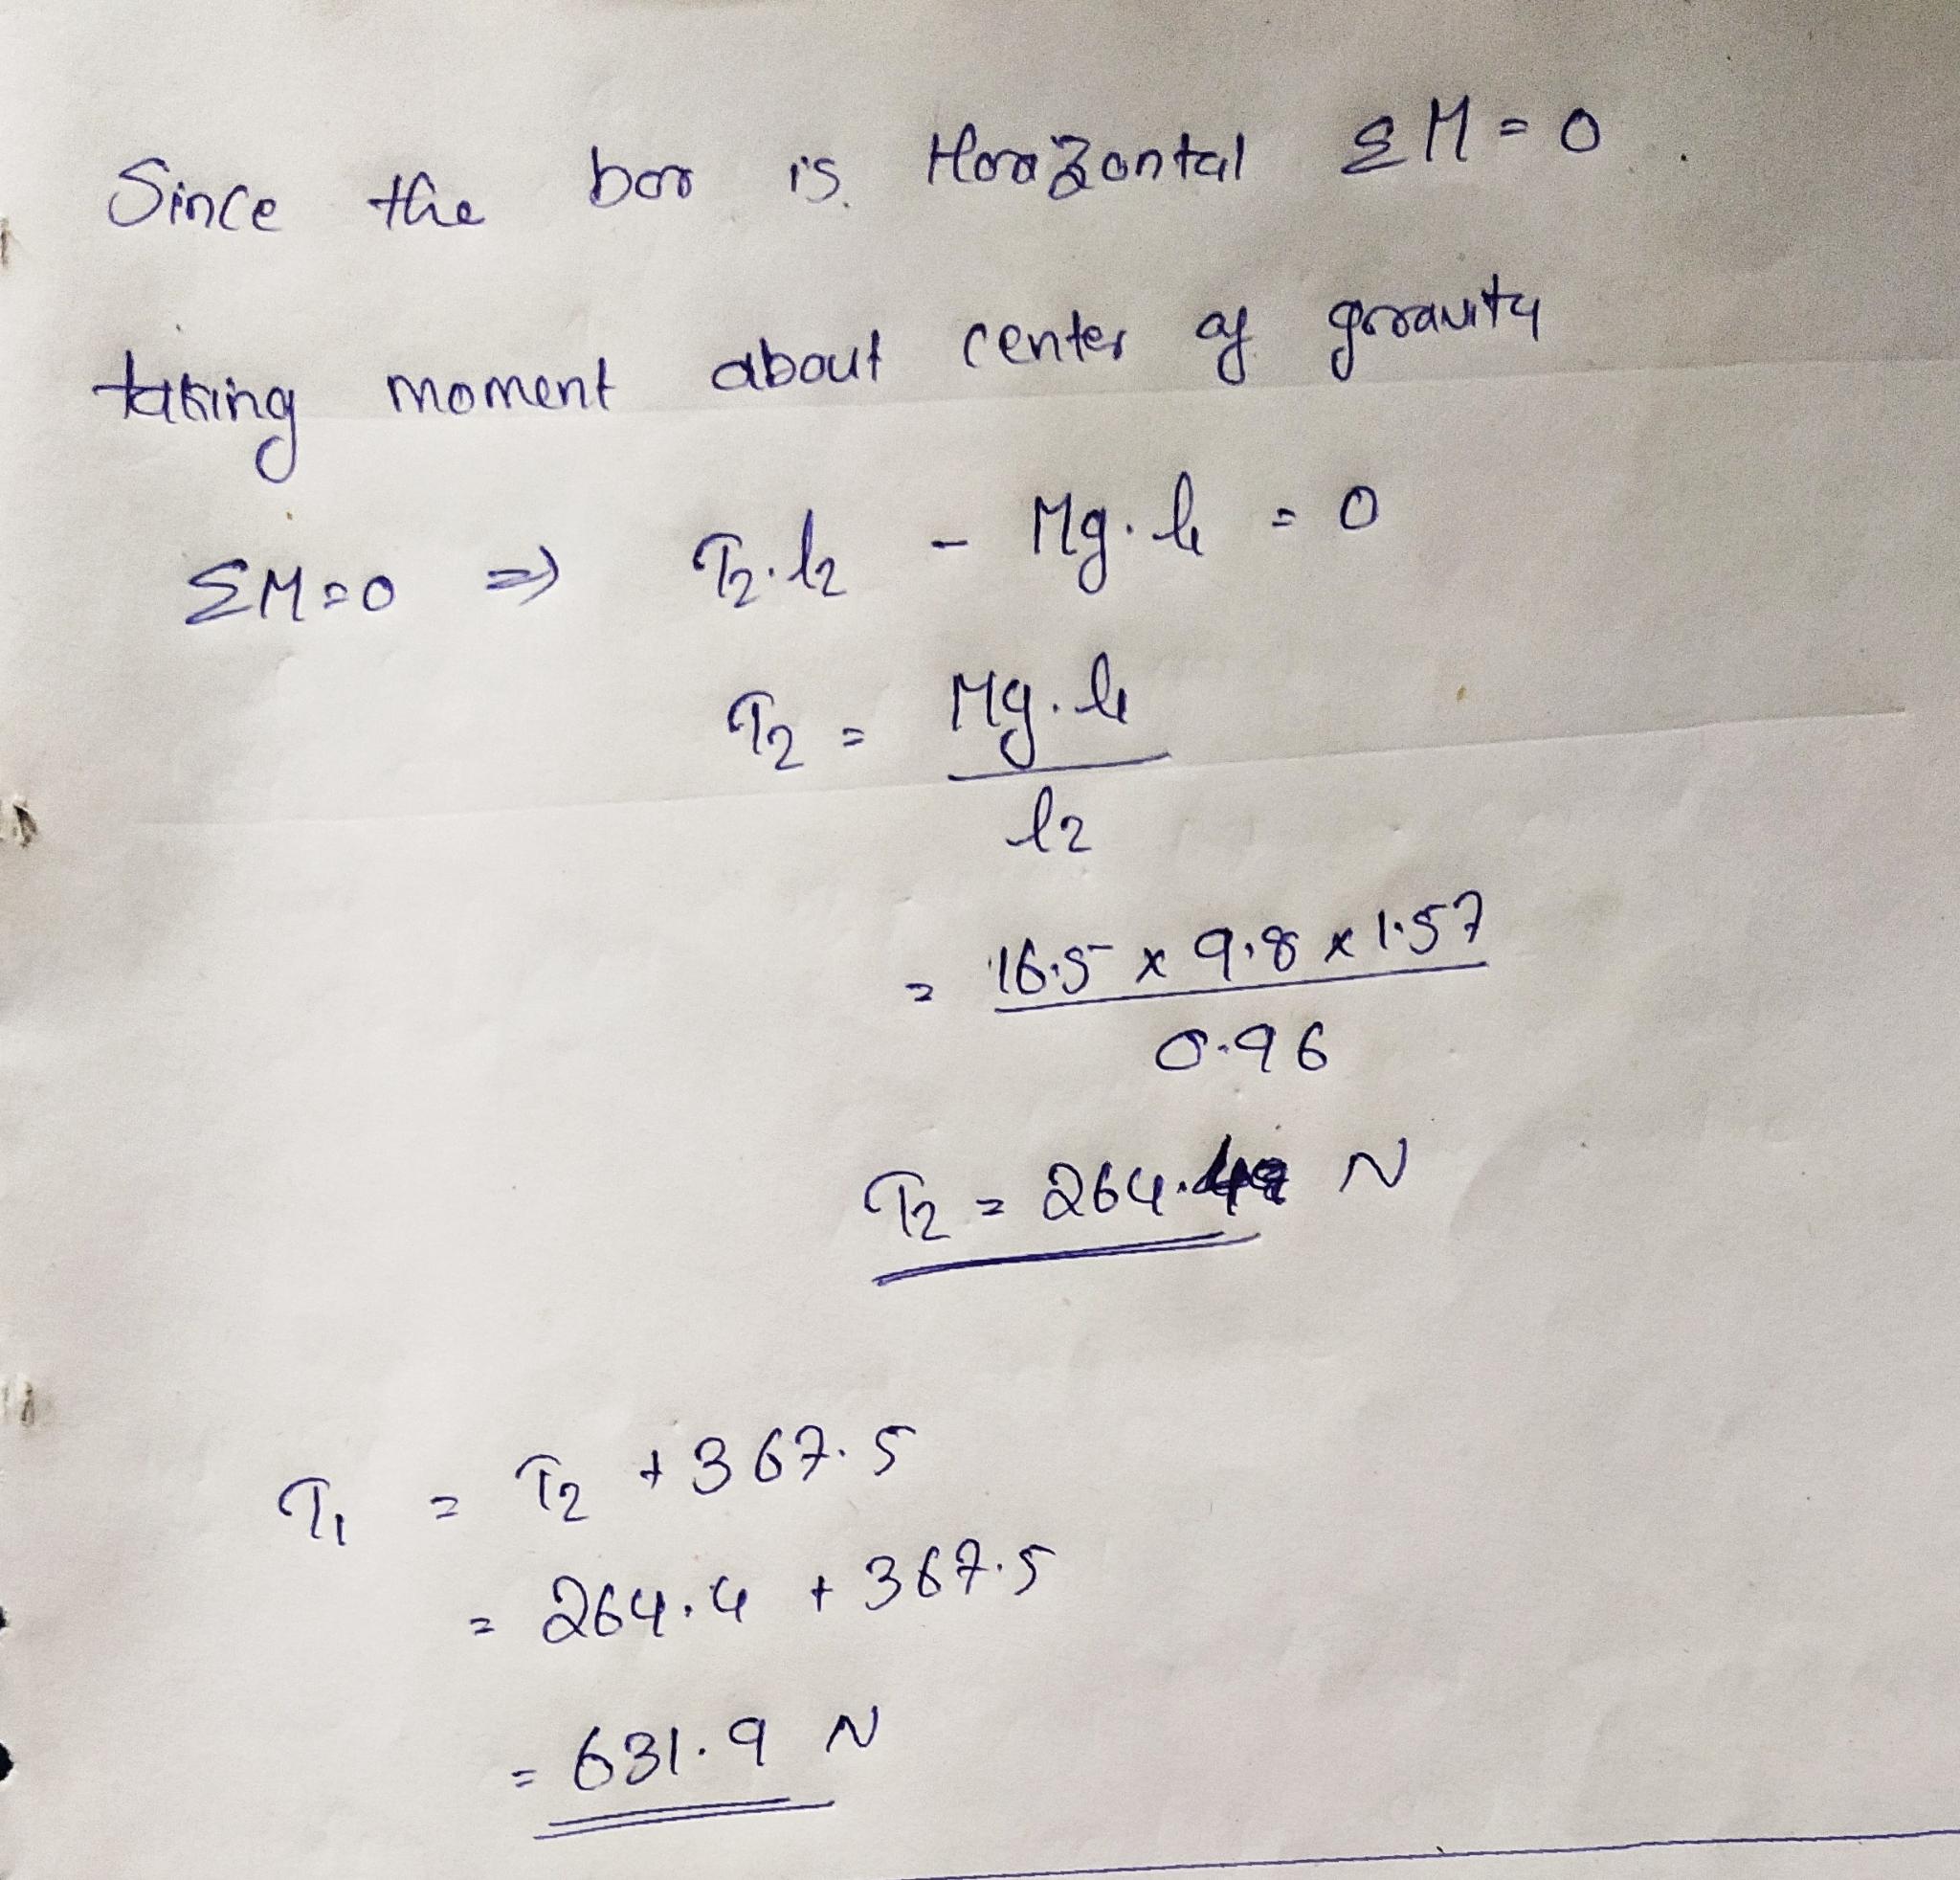 Since the bar is Horizontal ΣM = 0.
taking moment about center of gravity
ΣM = 0 ⇒ T₂.l₂ - Mg.l₁ = 0
T₂ = Mg.l₁
l₂
= 16.5 x 9.8 x 1.57
0.96
T₂ = 264.4 N
T₁ = T₂ + 367.5
= 264.4 + 367.5
= 631.9 N